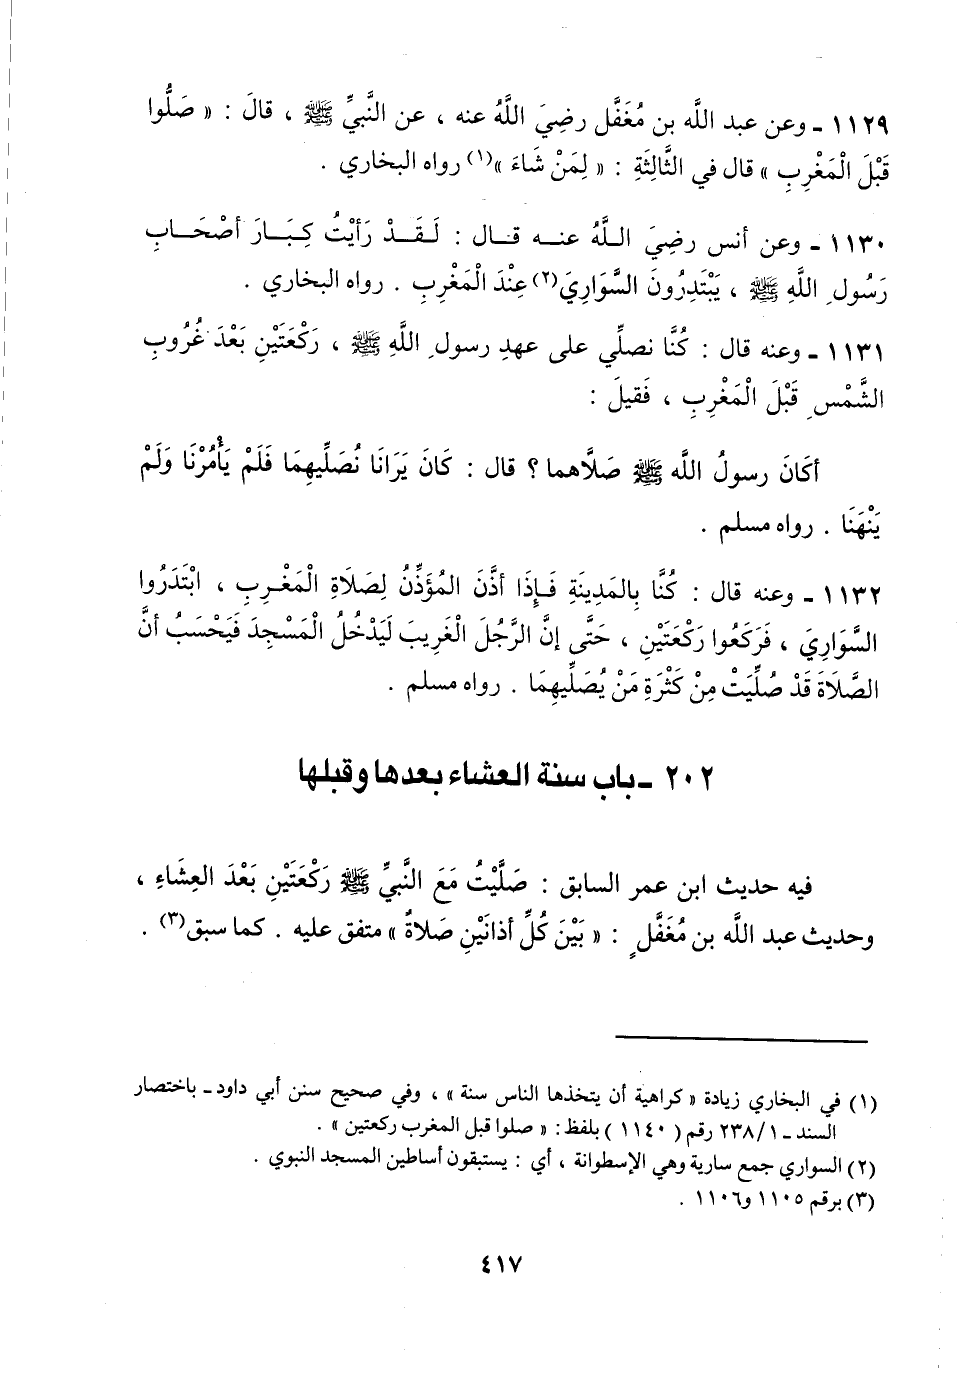 ١١٢٩ ـ وعن عبد اللَّه بن مُغَفَّل رضِيَ اللَّهُ عنه ، عن النَّبيِّ ﷺ ، قالَ : « صَلُّوا
قَبْلَ الْمَغْرِبِ » قال في الثَّالِثَةِ : « لِمَنْ شَاءَ »(١) رواه البخاري .
١١٣٠ ـ وعن أنس رضِيَ اللَّهُ عنه قال : لَقَدْ رَأَيْتُ كِبَارَ أصْحَابِ
رَسُولِ اللَّهِ ﷺ ، يَبْتَدِرُونَ السَّوَارِيَ(٢) عِنْدَ الْمَغْرِبِ . رواه البخاري .
١١٣١ ـ وعنه قال : كُنَّا نصلِّي على عهدِ رسولِ اللَّهِ ﷺ ، رَكْعَتَيْنِ بَعْدَ غُرُوبِ
الشَّمْسِ قَبْلَ الْمَغْرِبِ ، فَقيلَ :
أكَانَ رسولُ اللَّه ﷺ صَلَّاهما ؟ قال : كَانَ يَرَانَا نُصَلِّيهِمَا فَلَمْ يَأْمُرْنَا وَلَمْ
يَنْهَنَا . رواه مسلم .
١١٣٢ ـ وعنه قال : كُنَّا بِالمَدِينَةِ فَإِذَا أذَّنَ المُؤَذِّنُ لِصَلَاةِ الْمَغْرِبِ ، ابْتَدَرُوا
السَّوَارِيَ ، فَرَكَعُوا رَكْعَتَيْنِ ، حَتَّى إنَّ الرَّجُلَ الْغَرِيبَ لَيَدْخُلُ الْمَسْجِدَ فَيَحْسَبُ أنَّ
الصَّلَاةَ قَدْ صُلِّيَتْ مِنْ كَثْرَةِ مَنْ يُصَلِّيهِمَا . رواه مسلم .
٢٠٢ ـ باب سنة العشاء بعدها وقبلها
فيه حديث ابن عمر السابق : صَلَّيْتُ مَعَ النَّبيِّ ﷺ رَكْعَتَيْنِ بَعْدَ العِشَاءِ ،
وحديث عبد اللَّه بن مُغَفَّلٍ : « بَيْنَ كُلِّ أذانَيْنِ صَلاةٌ » متفق عليه . كما سبق(٣) .
(١) في البخاري زيادة « كراهية أن يتخذها الناس سنة » ، وفي صحيح سنن أبي داود ـ باختصار
السند ـ ٢٣٨/١ رقم ( ١١٤٠ ) بلفظ : « صلوا قبل المغرب ركعتين » .
(٢) السواري جمع سارية وهي الإسطوانة ، أي : يستبقون أساطين المسجد النبوي .
(٣) برقم ١١٠٥ و١١٠٦ .
٤١٧